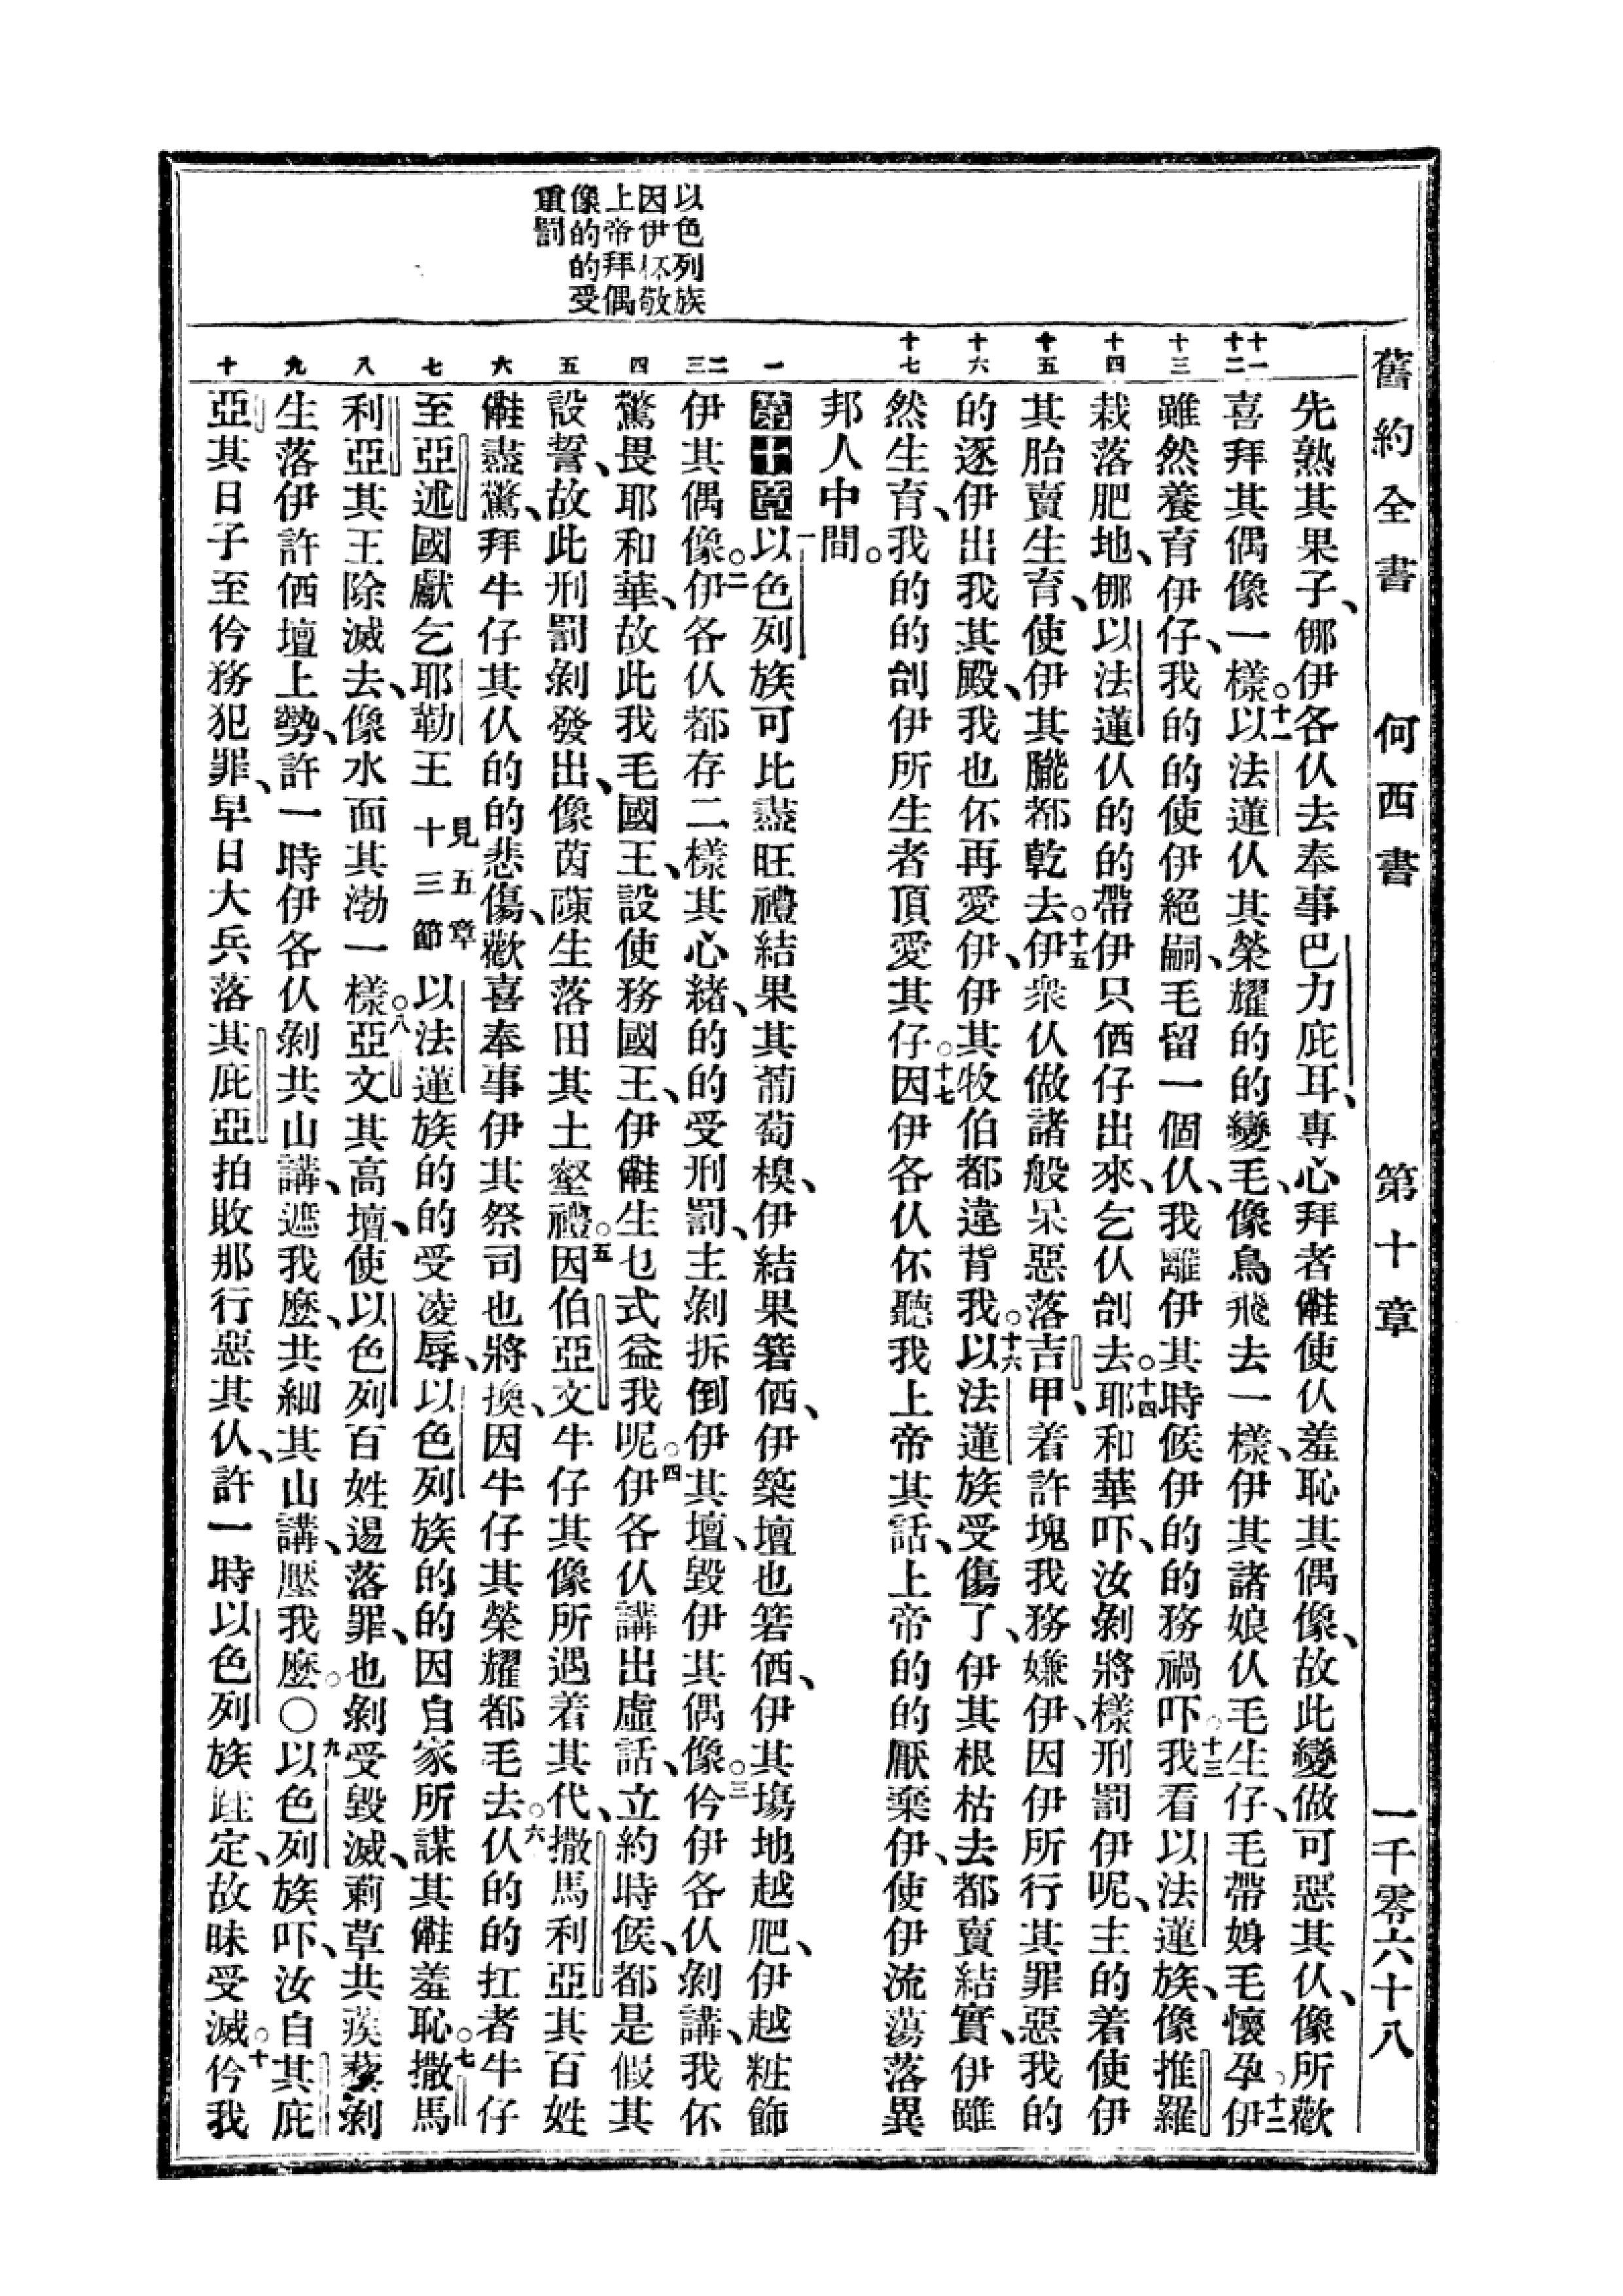 舊約全書 何西書 第十章 一千零六十八
以色列族
因伊伓敬
上帝拜偶
像的的受
重罰
十一
十二
十三
十四
十五
十六
十七
一
二
三
四
五
六
七
八
九
十
先熟其果子、倻伊各仈去奉事巴力庇耳、專心拜者㒕使仈羞恥其偶像、故此變做可惡其仈、像所歡
喜拜其偶像一樣。十一以法蓮仈其榮耀的的變毛、像鳥飛去一樣、伊其諸娘仈毛生仔、毛帶娒毛懷孕、十二伊
雖然養育伊仔、我的的使伊絕嗣、毛留一個仈、我離伊其時候伊的的務禍吓。十三我看以法蓮族、像推羅
栽落肥地、倻以法蓮仈的的帶伊只㐔仔出來、乞仈刣去。十四耶和華吓、汝剝將樣刑罰伊呢、主的着使伊
其胎賣生育、使伊其𦢌都乾去。十五伊衆仈做諸般呆惡落吉甲、着許塊我務嫌伊、因伊所行其罪惡我的
的逐伊出我其殿、我也伓再愛伊、伊其牧伯都違背我。十六以法蓮族受傷了、伊其根枯去都賣結實、伊雖
然生育、我的的刣伊所生者頂愛其仔。十七因伊各仈伓聽我上帝其話、上帝的的厭棄伊、使伊流蕩落異
邦人中間。
第十章一以色列族可比盡旺禮結果其葡萄樹、伊結果箬㐔、伊築壇也箬㐔、伊其塲地越肥、伊越粧飾
伊其偶像。二伊各仈都存二樣其心緒、的的受刑罰、主剝拆倒伊其壇、毀伊其偶像。三伶伊各仈剝講、我伓
驚畏耶和華、故此我毛國王、設使務國王、伊㒕生乜式益我呢。四伊各仈講出虛話、立約時候、都是假其
設誓、故此刑罰剝發出、像茵蔯生落田其土壑禮。五因伯亞文牛仔其像所遇着其代、撒馬利亞其百姓
㒕盡驚、拜牛仔其仈的的悲傷、歡喜奉事伊其祭司也將換、因牛仔其榮耀都毛去。六仈的的扛者牛仔
至亞述國獻乞耶勒王 見五章十三節 以法蓮族的的受凌辱、以色列族的的因自家所謀其㒕羞恥。七撒馬
利亞其王除滅去、像水面其渤一樣。八亞文其高壇、使以色列百姓逿落罪、也剝受毀滅、莿草共蒺藜剝
生落伊許㐔壇上勢、許一時伊各仈剝共山講、遮我麽、共細其山講、壓我麽。〇九以色列族吓、汝自其庇
亞其日子至伶務犯罪、早日大兵落其庇亞拍敗那行惡其仈、許一時以色列族𨂾定、故昧受滅。十伶我